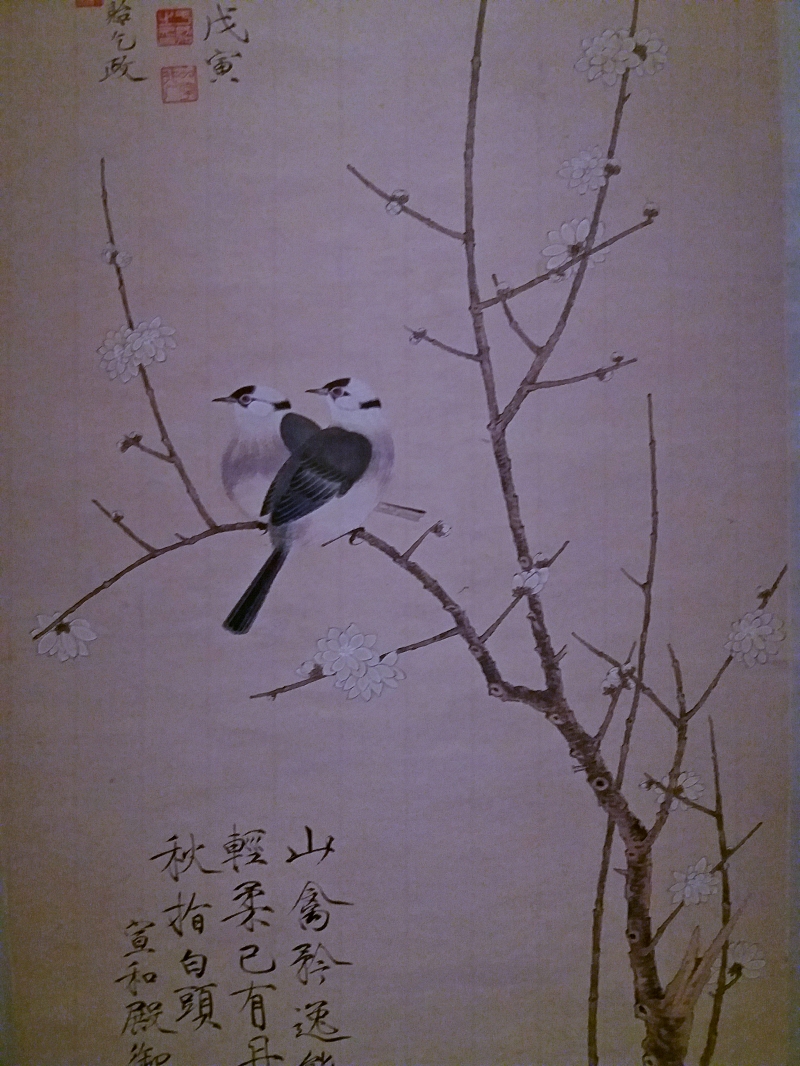 戊寅
乞政
山禽矜逸
輕柔已有丹
秋指白頭
宣和殿御